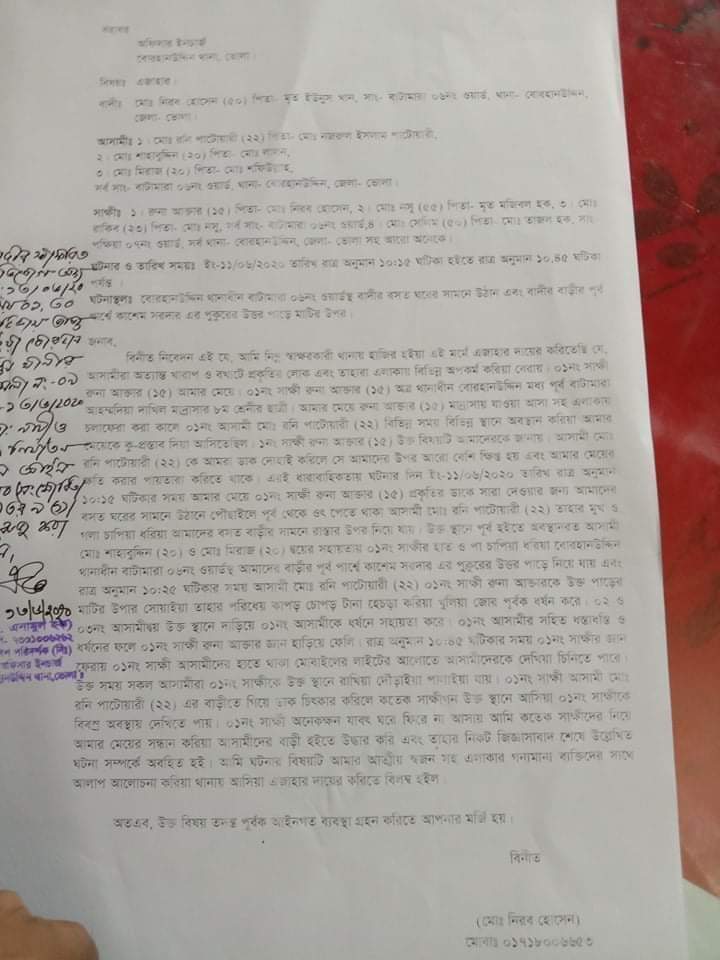 বরাবর
অফিসার ইনচার্জ
বোরহানউদ্দিন থানা, ভোলা।
বিষয়ঃ এজাহার।
বাদীঃ মোঃ নিরব হোসেন (৫০) পিতা- মৃত ইউনুস খান, সাং- বাটামারা ০৬নং ওয়ার্ড, থানা- বোরহানউদ্দিন,
জেলা- ভোলা।
আসামীঃ ১। মোঃ রনি পাটোয়ারী (২২) পিতা- মোঃ নজরুল ইসলাম পাটোয়ারী,
২। মোঃ শাহাবুদ্দিন (২০) পিতা- মোঃ লালন,
৩। মোঃ মিরাজ (২০) পিতা- মোঃ শফিউল্লাহ,
সর্ব সাং- বাটামারা ০৬নং ওয়ার্ড, থানা- বোরহানউদ্দিন, জেলা- ভোলা।
সাক্ষীঃ ১। রুনা আক্তার (১৫) পিতা- মোঃ নিরব হোসেন, ২। মোঃ নসু (৫৫) পিতা- মৃত মজিবল হক, ৩। মোঃ
রাকিব (২৩) পিতা- মোঃ নসু, সর্ব সাং- বাটামারা ০৬নং ওয়ার্ড,৪। মোঃ সেলিম (৫০) পিতা- মোঃ তাজল হক, সাং-
পক্ষিয়া ০৭নং ওয়ার্ড, সর্ব থানা- বোরহানউদ্দিন, জেলা- ভোলা সহ আরো অনেকে।
ঘটনার ও তারিখ সময়ঃ ইং-১১/০৬/২০২০ তারিখ রাত্র অনুমান ১০:১৫ ঘটিকা হইতে রাত্র অনুমান ১০.৪৫ ঘটিকা
পর্যন্ত।
ঘটনাস্থলঃ বোরহানউদ্দিন থানাধীন বাটামারা ০৬নং ওয়ার্ডস্থ বাদীর বসত ঘরের সামনে উঠান এবং বাদীর বাড়ীর পূর্ব
পার্শ্বে কাশেম সরদার এর পুকুরের উত্তর পাড়ে মাটির উপর।
জনাব,
বিনীত নিবেদন এই যে, আমি নিম্ন স্বাক্ষরকারী থানায় হাজির হইয়া এই মর্মে এজাহার দায়ের করিতেছি যে,
আসামীরা অত্যান্ত খারাপ ও বখাটে প্রকৃতির লোক এবং তাহারা এলাকায় বিভিন্ন অপকর্ম করিয়া বেরায়। ০১নং সাক্ষী
রুনা আক্তার (১৫) আমার মেয়ে। ০১নং সাক্ষী রুনা আক্তার (১৫) অত্র থানাধীন বোরহানউদ্দিন মধ্য পূর্ব বাটামারা
আহম্মদিয়া দাখিল মাদ্রাসার ৮ম শ্রেনীর ছাত্রী। আমার মেয়ে রুনা আক্তার (১৫) মাদ্রাসায় যাওয়া আসা সহ এলাকায়
চলাফেরা করা কালে ০১নং আসামী মোঃ রনি পাটোয়ারী (২২) বিভিন্ন সময় বিভিন্ন স্থানে অবস্থান করিয়া আমার
মেয়েকে কু-প্রস্তাব দিয়া আসিতেছিল। ১নং সাক্ষী রুনা আক্তার (১৫) উক্ত বিষয়টি আমাদেরকে জানায়। আসামী মোঃ
রনি পাটোয়ারী (২২) কে আমরা ডাক দোহাই করিলে সে আমাদের উপর আরো বেশি ক্ষিপ্ত হয় এবং আমার মেয়ের
ক্ষতি করার পায়তারা করিতে থাকে। এরই ধারাবাহিকতায় ঘটনার দিন ইং-১১/০৬/২০২০ তারিখ রাত্র অনুমান
১০:১৫ ঘটিকার সময় আমার মেয়ে ০১নং সাক্ষী রুনা আক্তার (১৫) প্রকৃতির ডাকে সারা দেওয়ার জন্য আমাদের
বসত ঘরের সামনে উঠানে পৌছাইলে পূর্ব থেকে ওৎ পেতে থাকা আসামী মোঃ রনি পাটোয়ারী (২২) তাহার মুখ ও
গলা চাপিয়া ধরিয়া আমাদের বসত বাড়ীর সামনে রাস্তার উপর নিয়ে যায়। উক্ত স্থানে পূর্ব হইতে অবস্থানরত আসামী
মোঃ শাহাবুদ্দিন (২০) ও মোঃ মিরাজ (২০) দ্বয়ের সহায়তায় ০১নং সাক্ষীর হাত ও পা চাপিয়া ধরিয়া বোরহানউদ্দিন
থানাধীন বাটামারা ০৬নং ওয়ার্ডস্থ আমাদের বাড়ীর পূর্ব পার্শ্বে কাশেম সরদার এর পুকুরের উত্তর পাড়ে নিয়ে যায় এবং
রাত্র অনুমান ১০:২৫ ঘটিকার সময় আসামী মোঃ রনি পাটোয়ারী (২২) ০১নং সাক্ষী রুনা আক্তারকে উক্ত পাড়ের
মাটির উপার সোয়াইয়া তাহার পরিধেয় কাপড় চোপড় টানা হেচড়া করিয়া খুলিয়া জোর পূর্বক ধর্ষন করে। ০২ ও
০৩নং আসামীদ্বয় উক্ত স্থানে দাড়িয়ে ০১নং আসামীকে ধর্ষনে সহায়তা করে। ০১নং আসামীর সহিত ধস্তাধস্তি ও
ধর্ষনের ফলে ০১নং সাক্ষী রুনা আক্তার জ্ঞান হাড়িয়ে ফেলি। রাত্র অনুমান ১০:৪৫ ঘটিকার সময় ০১নং সাক্ষীর জ্ঞান
ফেরায় ০১নং সাক্ষী আসামীদের হাতে থাকা মোবাইলের লাইটের আলোতে আসামীদেরকে দেখিয়া চিনিতে পারে।
উক্ত সময় সকল আসামীরা ০১নং সাক্ষীকে উক্ত স্থানে রাখিয়া দৌড়াইয়া পালাইয়া যায়। ০১নং সাক্ষী আসামী মোঃ
রনি পাটোয়ারী (২২) এর বাড়ীতে গিয়ে ডাক চিৎকার করিলে কতেক সাক্ষীগন উক্ত স্থানে আসিয়া ০১নং সাক্ষীকে
বিবস্র অবস্থায় দেখিতে পায়। ০১নং সাক্ষী অনেকক্ষন যাবৎ ঘরে ফিরে না আসায় আমি কতেক সাক্ষীদের নিয়ে
আমার মেয়ের সন্ধান করিয়া আসামীদের বাড়ী হইতে উদ্ধার করি এবং তাহার নিকট জিজ্ঞাসাবাদ শেষে উল্লেখিত
ঘটনা সম্পর্কে অবহিত হই। আমি ঘটনার বিষয়টি আমার আত্মীয় স্বজন সহ এলাকার গন্যমান্য ব্যক্তিদের সাথে
আলাপ আলোচনা করিয়া থানায় আসিয়া এজাহার দায়ের করিতে বিলম্ব হইল।
অতএব, উক্ত বিষয় তদন্ত পূর্বক আইনগত ব্যবস্থা গ্রহন করিতে আপনার মর্জি হয়।
বিনীত
(মোঃ নিরব হোসেন)
মোবাঃ ০১৭১৮০০৬৬৫৩